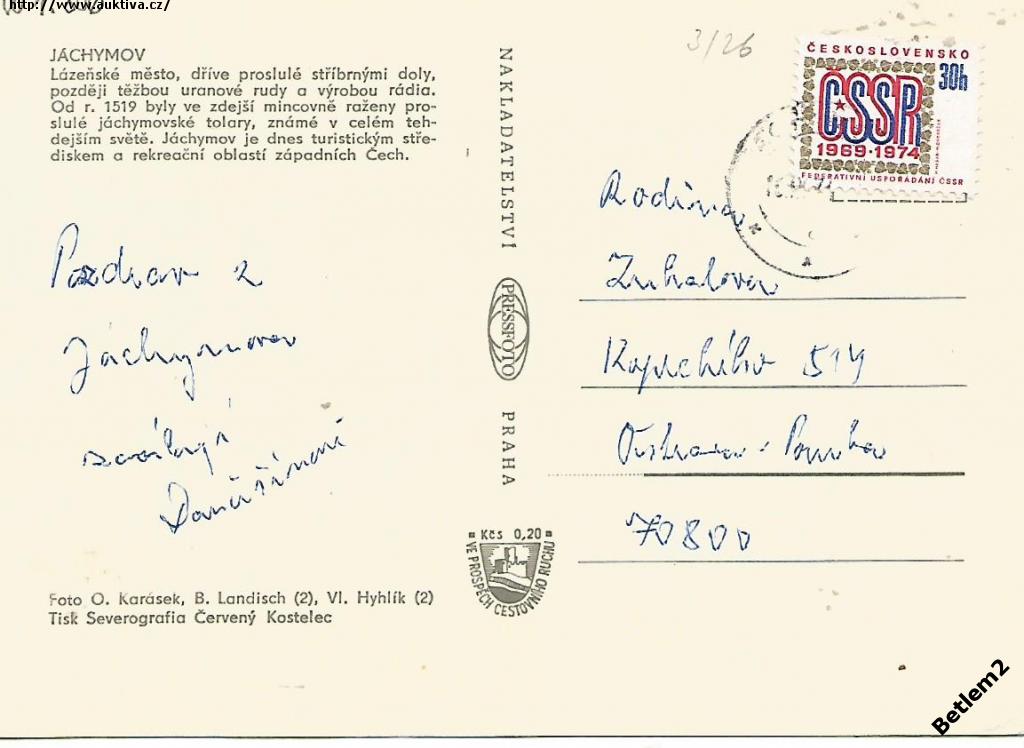 http://www.auktiva.cz/
JÁCHYMOV
Lázeňské město, dříve proslulé stříbrnými doly,
později těžbou uranové rudy a výrobou rádia.
Od r. 1519 byly ve zdejší mincovně raženy pro-
slulé jáchymovské tolary, známé v celém teh-
dejším světě. Jáchymov je dnes turistickým stře-
diskem a rekreační oblastí západních Čech.
Pozdrav z
Jáchymova
zasílají
Foto O. Karásek, B. Landisch (2), Vl. Hyhlík (2)
Tisk Severografia Červený Kostelec
NAKLADATELSTVÍ
PRESSFOTO
PRAHA
Kčs 0,20
VE PROSPĚCH CESTOVNÍHO RUCHU
3/26
ČESKOSLOVENSKO
30h
ČSSR
1969·1974
FEDERATIVNÍ USPOŘÁDÁNÍ ČSSR
Rodina
Zuhalova
514
Ostrava - Poruba
70800
Betlem2